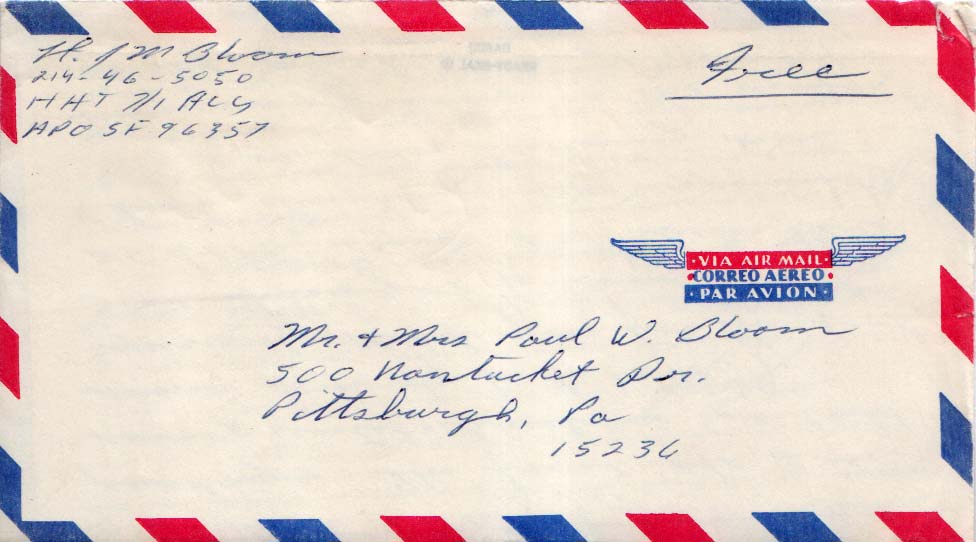 J M Bloom
214-46-5050
HHT 7/1 ACS
APO SF 96357
Free
VIA AIR MAIL
CORREO AEREO
PAR AVION
Mr. & Mrs Paul W. Bloom
500 Nantucket Dr.
Pittsburgh, Pa
15236